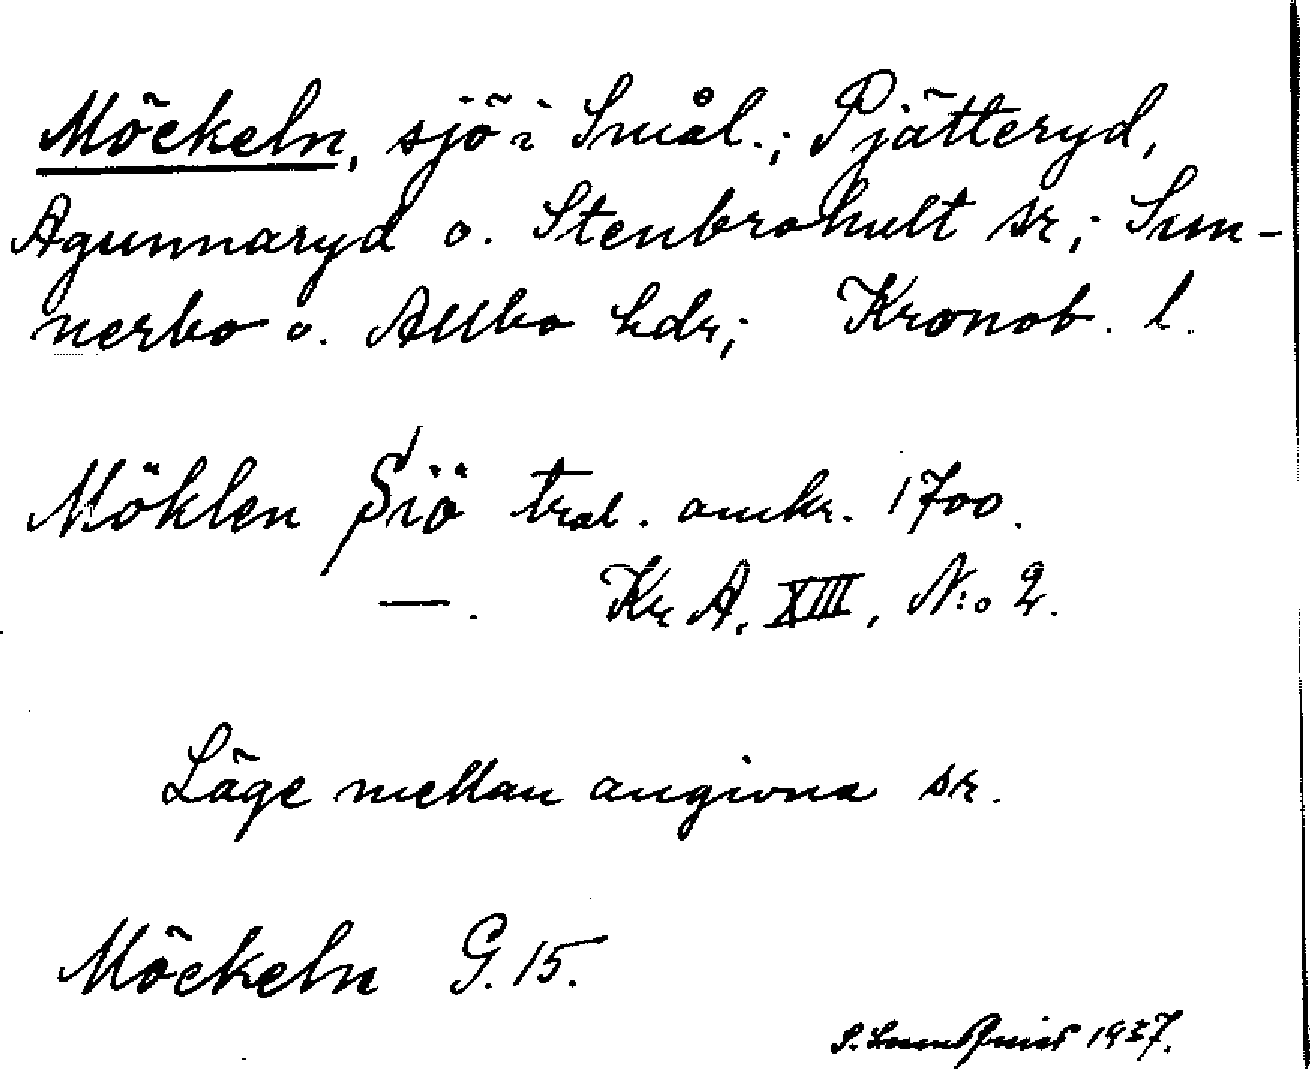 Möckeln, sjö i Smål.; Pjätteryd,
Agunnaryd o. Stenbrohult sr; Sun-
nerbo o. Allbo hdr; Kronob. l.
Möklen Siö tral. omkr. 1700.
—. Kr A. XIII, N:o 2.
Läge mellan angivna sr.
Möckeln G. 15.
S. Lundquist 1937.